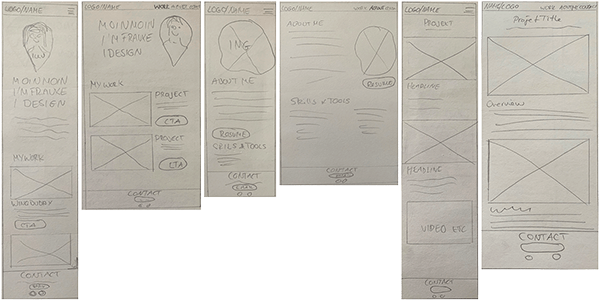 LOGO/NAME
MOINMOIN
I'M FRAUKE
I DESIGN
MY WORK
CTA
CONTACT
LOGO/NAME
WORK ABOUT
MOINMOIN
I'M FRAUKE
I DESIGN
MY WORK
PROJECT
CTA
PROJECT
CTA
CONTACT
LOGO/NAME
ING
ABOUT ME
RESUME
SKILLS & TOOLS
CONTACT
LOGO/NAME
WORK ABOUT
ABOUT ME
RESUME
SKILLS & TOOLS
CONTACT
LOGO/NAME
PROJECT
HEADLINE
HEADLINE
VIDEO ETC
CONTACT
NAME/LOGO
WORK ABOUT CONTACT
Project Title
Overview
CONTACT